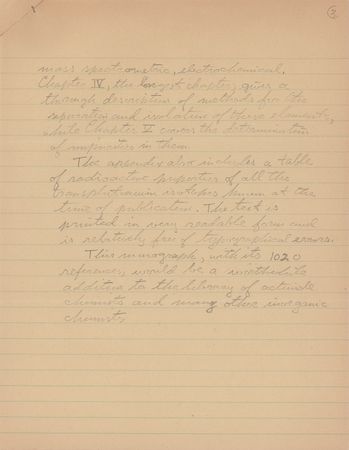 3
mass spectrometric, electrochemical.
Chapter IV, the longest chapter, gives a
through description of methods for the
separation and isolation of these elements,
while Chapter V covers the determination
of impurities in them.
The appendix also includes a table
of radioactive properties of all the
transplutonium isotopes known at the
time of publication. The text is
printed in very readable form and
is relatively free of typographical errors.
This monograph, with its 1020
references, would be a worthwhile
addition to the library of actinide
chemists and many other inorganic
chemists.